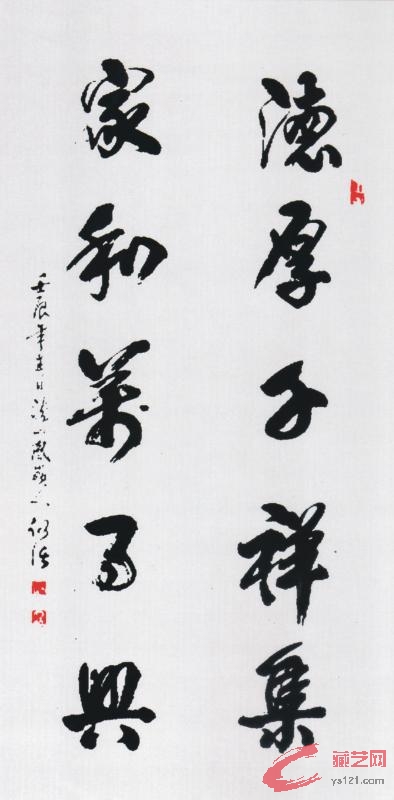 德厚千祥集
家和萬事興
壬辰年春日
藏艺网
ys121.com